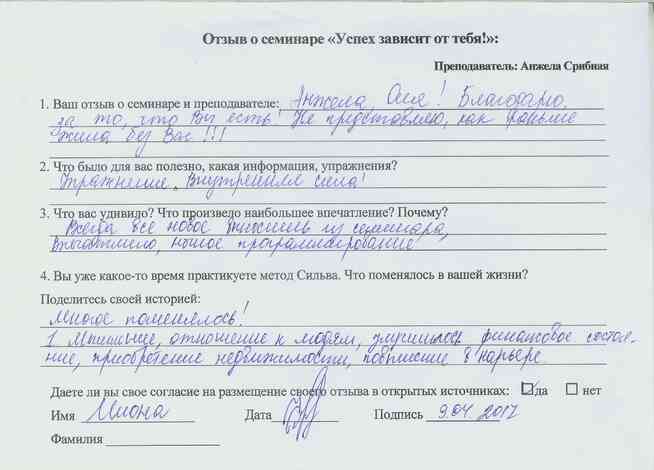 Отзыв о семинаре «Успех зависит от тебя!»:
Преподаватель: Анжела Срибная
1. Ваш отзыв о семинаре и преподавателе: Анжела, Оля! Благодарю,
за то, что Вы есть! Не представляю, как раньше
жила без Вас!!!
2. Что было для вас полезно, какая информация, упражнения?
Упражнение "Внутренняя сила!
3. Что вас удивило? Что произвело наибольшее впечатление? Почему?
Всегда все новое из семинара,
ночное программирование
4. Вы уже какое-то время практикуете метод Сильва. Что поменялось в вашей жизни?
Поделитесь своей историей:
Многое поменялось!
1. Мышление, отношение к людям, улучшилось финансовое состоя-
ние, приобретение недвижимости, повышение в карьере
Даете ли вы свое согласие на размещение своего отзыва в открытых источниках: да нет
Имя Илона Дата Подпись 9.04.2017
Фамилия